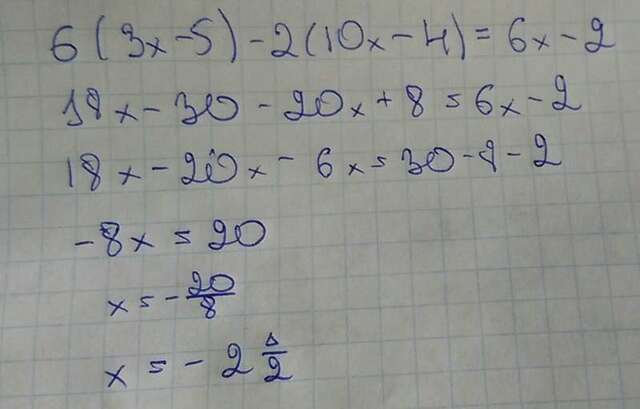 6(3x-5)-2(10x-4)=6x-2
18x-30-20x+8=6x-2
18x-20x-6x=30-8-2
-8x=20
x=-20/8
x=-2 1/2